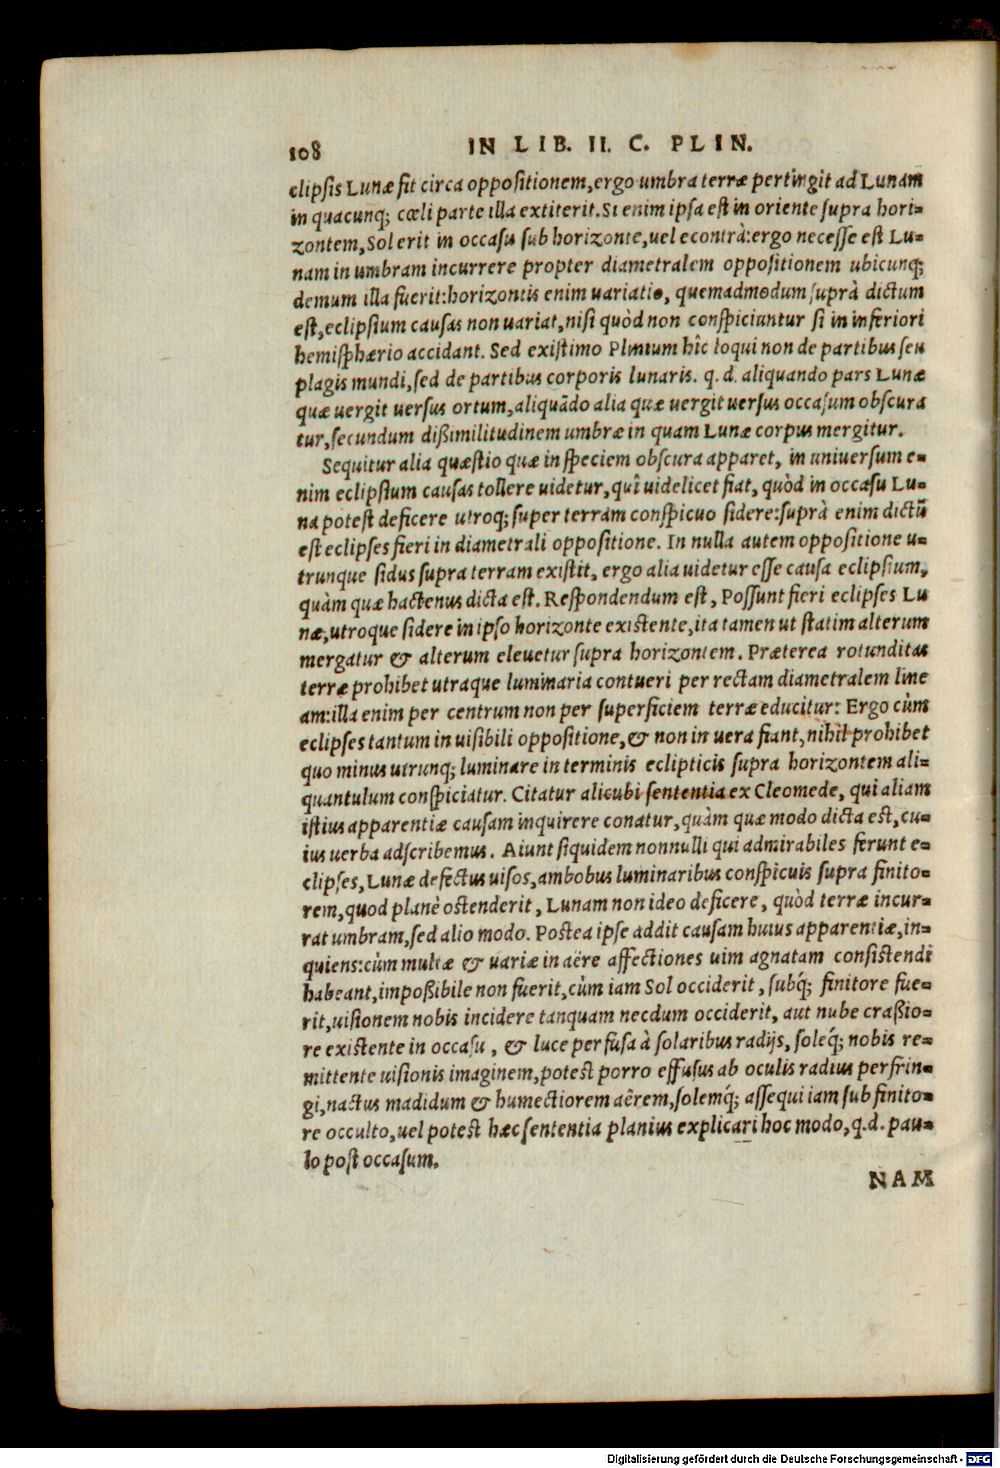 108 IN LIB. II. C. PLIN.
clipsis Lunæ fit circa oppositionem, ergo umbra terræ pertingit ad Lunam
in quacunq; cœli parte illa extiterit. Si enim ipsa est in oriente supra hori-
zontem, Sol erit in occasu sub horizonte, uel econtrà: ergo necesse est Lu-
nam in umbram incurrere propter diametralem oppositionem ubicunq;
demum illa fuerit: horizontis enim uariatio, quemadmodum suprà dictum
est, eclipsium causas non uariat, nisi quòd non conspiciuntur si in inferiori
hemisphærio accidant. Sed existimo Plinium hîc loqui non de partibus seu
plagis mundi, sed de partibus corporis lunaris. q. d. aliquando pars Lunæ
quæ uergit uersus ortum, aliquādo alia quæ uergit uersus occasum obscura
tur, secundum dißimilitudinem umbræ in quam Lunæ corpus mergitur.
Sequitur alia quæstio quæ in speciem obscura apparet, in uniuersum e-
nim eclipsium causas tollere uidetur, quî uidelicet fiat, quòd in occasu Lu-
na potest deficere utroq; super terram conspicuo sidere: suprà enim dictū
est eclipses fieri in diametrali oppositione. In nulla autem oppositione u-
trunque sidus supra terram existit, ergo alia uidetur esse causa eclipsium,
quàm quæ hactenus dicta est. Respondendum est, Possunt fieri eclipses Lu
næ, utroque sidere in ipso horizonte existente, ita tamen ut statim alterum
mergatur & alterum eleuetur supra horizontem. Præterea rotunditas
terræ prohibet utraque luminaria contueri per rectam diametralem line
am: illa enim per centrum non per superficiem terræ educitur: Ergo cùm
eclipses tantum in uisibili oppositione, & non in uera fiant, nihil prohibet
quo minus utrunq; luminare in terminis eclipticis supra horizontem ali-
quantulum conspiciatur. Citatur alicubi sententia ex Cleomede, qui aliam
istius apparentiæ causam inquirere conatur, quàm quæ modo dicta est, cu-
ius uerba adscribemus. Aiunt siquidem nonnulli qui admirabiles ferunt e-
clipses, Lunæ defectus uisos, ambobus luminaribus conspicuis supra finito-
rem, quod planè ostenderit, Lunam non ideo deficere, quòd terræ incur-
rat umbram, sed alio modo. Postea ipse addit causam huius apparentiæ, in-
quiens: cùm multæ & uariæ in aëre affectiones uim agnatam consistendi
habeant, impoßibile non fuerit, cùm iam Sol occiderit, subq́; finitore fue-
rit, uisionem nobis incidere tanquam necdum occiderit, aut nube craßio-
re existente in occasu, & luce perfusa à solaribus radijs, soleq́; nobis re-
mittente uisionis imaginem, potest porro effusus ab oculis radius perfrin-
gi, nactus madidum & humectiorem aërem, solemq́; assequi iam sub finito-
re occulto, uel potest hæc sententia planius explicari hoc modo, q. d. pau-
lo post occasum.
NAM
Digitalisierung gefördert durch die Deutsche Forschungsgemeinschaft - DFG